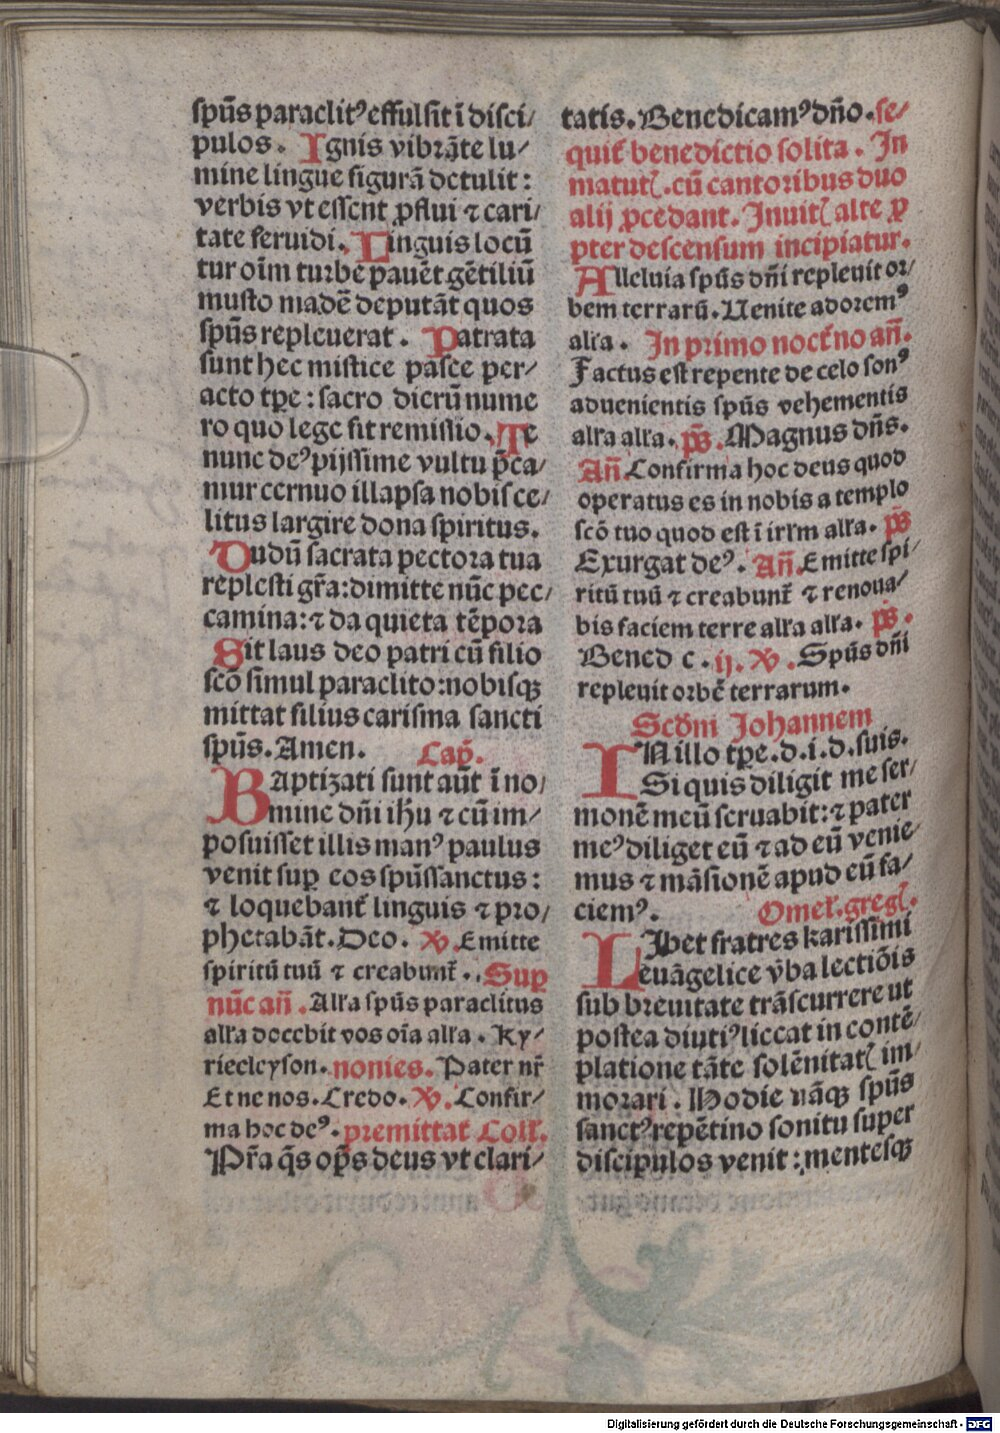 spūs paraclitꝰ effulsit ī disci⸗
pulos. Ignis vibrāte lu⸗
mine lingue figurā detulit :
verbis vt essent ꝓflui ⁊ cari⸗
tate feruidi. Linguis locū
tur oīm turbe pauēt gētiliū
musto madē deputāt quos
spūs repleuerat. Patrata
sunt hec mistice pasce per⸗
acto tp̄e : sacro dierū nume
ro quo lege fit remissio. Te
nunc deꝰ pijssime vultu p̄ca⸗
mur cernuo illapsa nobis ce⸗
litus largire dona spiritus.
Dudū sacrata pectora tua
replesti gr̄a: dimitte nūc pec⸗
camina: ⁊ da quieta tēpora
Sit laus deo patri cū filio
scō simul paraclito: nobisqꝫ
mittat filius carisma sancti
spūs. Amen. Cap̄.
Baptizati sunt aūt ī no⸗
mine dn̄i ih̄u ⁊ cū im⸗
posuisset illis manꝰ paulus
venit suꝑ eos spūssanctus :
⁊ loquebant̄ linguis ⁊ pro⸗
phetabāt. Deo. ꝟ. Emitte
spiritū tuū ⁊ creabunt̄. Suꝑ
nūc an̄. Alľa spūs paraclitus
alľa docebit vos oīa alľa. Ky⸗
rieeleyson. nonies. Pater nr̄
Et ne nos. Credo. ꝟ. Confir⸗
ma hoc deꝰ. premittat̄ Coll.
Pr̄a q̄s op̄s deus vt clari⸗
tatis. Benedicamꝰ dn̄o. se⸗
quit̄ benedictio solita. In
matut̄. cū cantoribus duo
alij ꝓcedant. Inuit̄ alte ꝓ
pter descensum incipiatur.
Alleluia spūs dn̄i repleuit or⸗
bem terrarū. Uenite adoremꝰ
alľa. In primo noct̄no an̄.
Factus est repente de celo sonꝰ
aduenientis spūs vehementis
alľa alľa. p̄s. Magnus dn̄s.
An̄. Confirma hoc deus quod
operatus es in nobis a templo
scō tuo quod est ī irľm alľa. p̄s
Exurgat deꝰ. An̄. Emitte spi⸗
ritū tuū ⁊ creabunt̄ ⁊ renoua⸗
bis faciem terre alľa alľa. p̄s.
Bened c. ij. ꝟ. Spūs dn̄i
repleuit orbē terrarum.
Scd̄m Johannem
IN illo tp̄e. d. i. d. suis.
Si quis diligit me ser⸗
monē meū seruabit: ⁊ pater
meꝰ diliget eū ⁊ ad eū venie⸗
mus ⁊ māsionē apud eū fa⸗
ciemꝰ. Omel̄. gregl̄.
Libet fratres karissimi
euāgelice v̄ba lectiōis
sub breuitate trāscurrere ut
postea diutiꝰ liceat in contē⸗
platione tāte solēnitat̄ im⸗
morari. Hodie nāqꝫ spūs
sanctꝰ repētino sonitu super
discipulos venit : mentesqꝫ
Digitalisierung gefördert durch die Deutsche Forschungsgemeinschaft - DFG